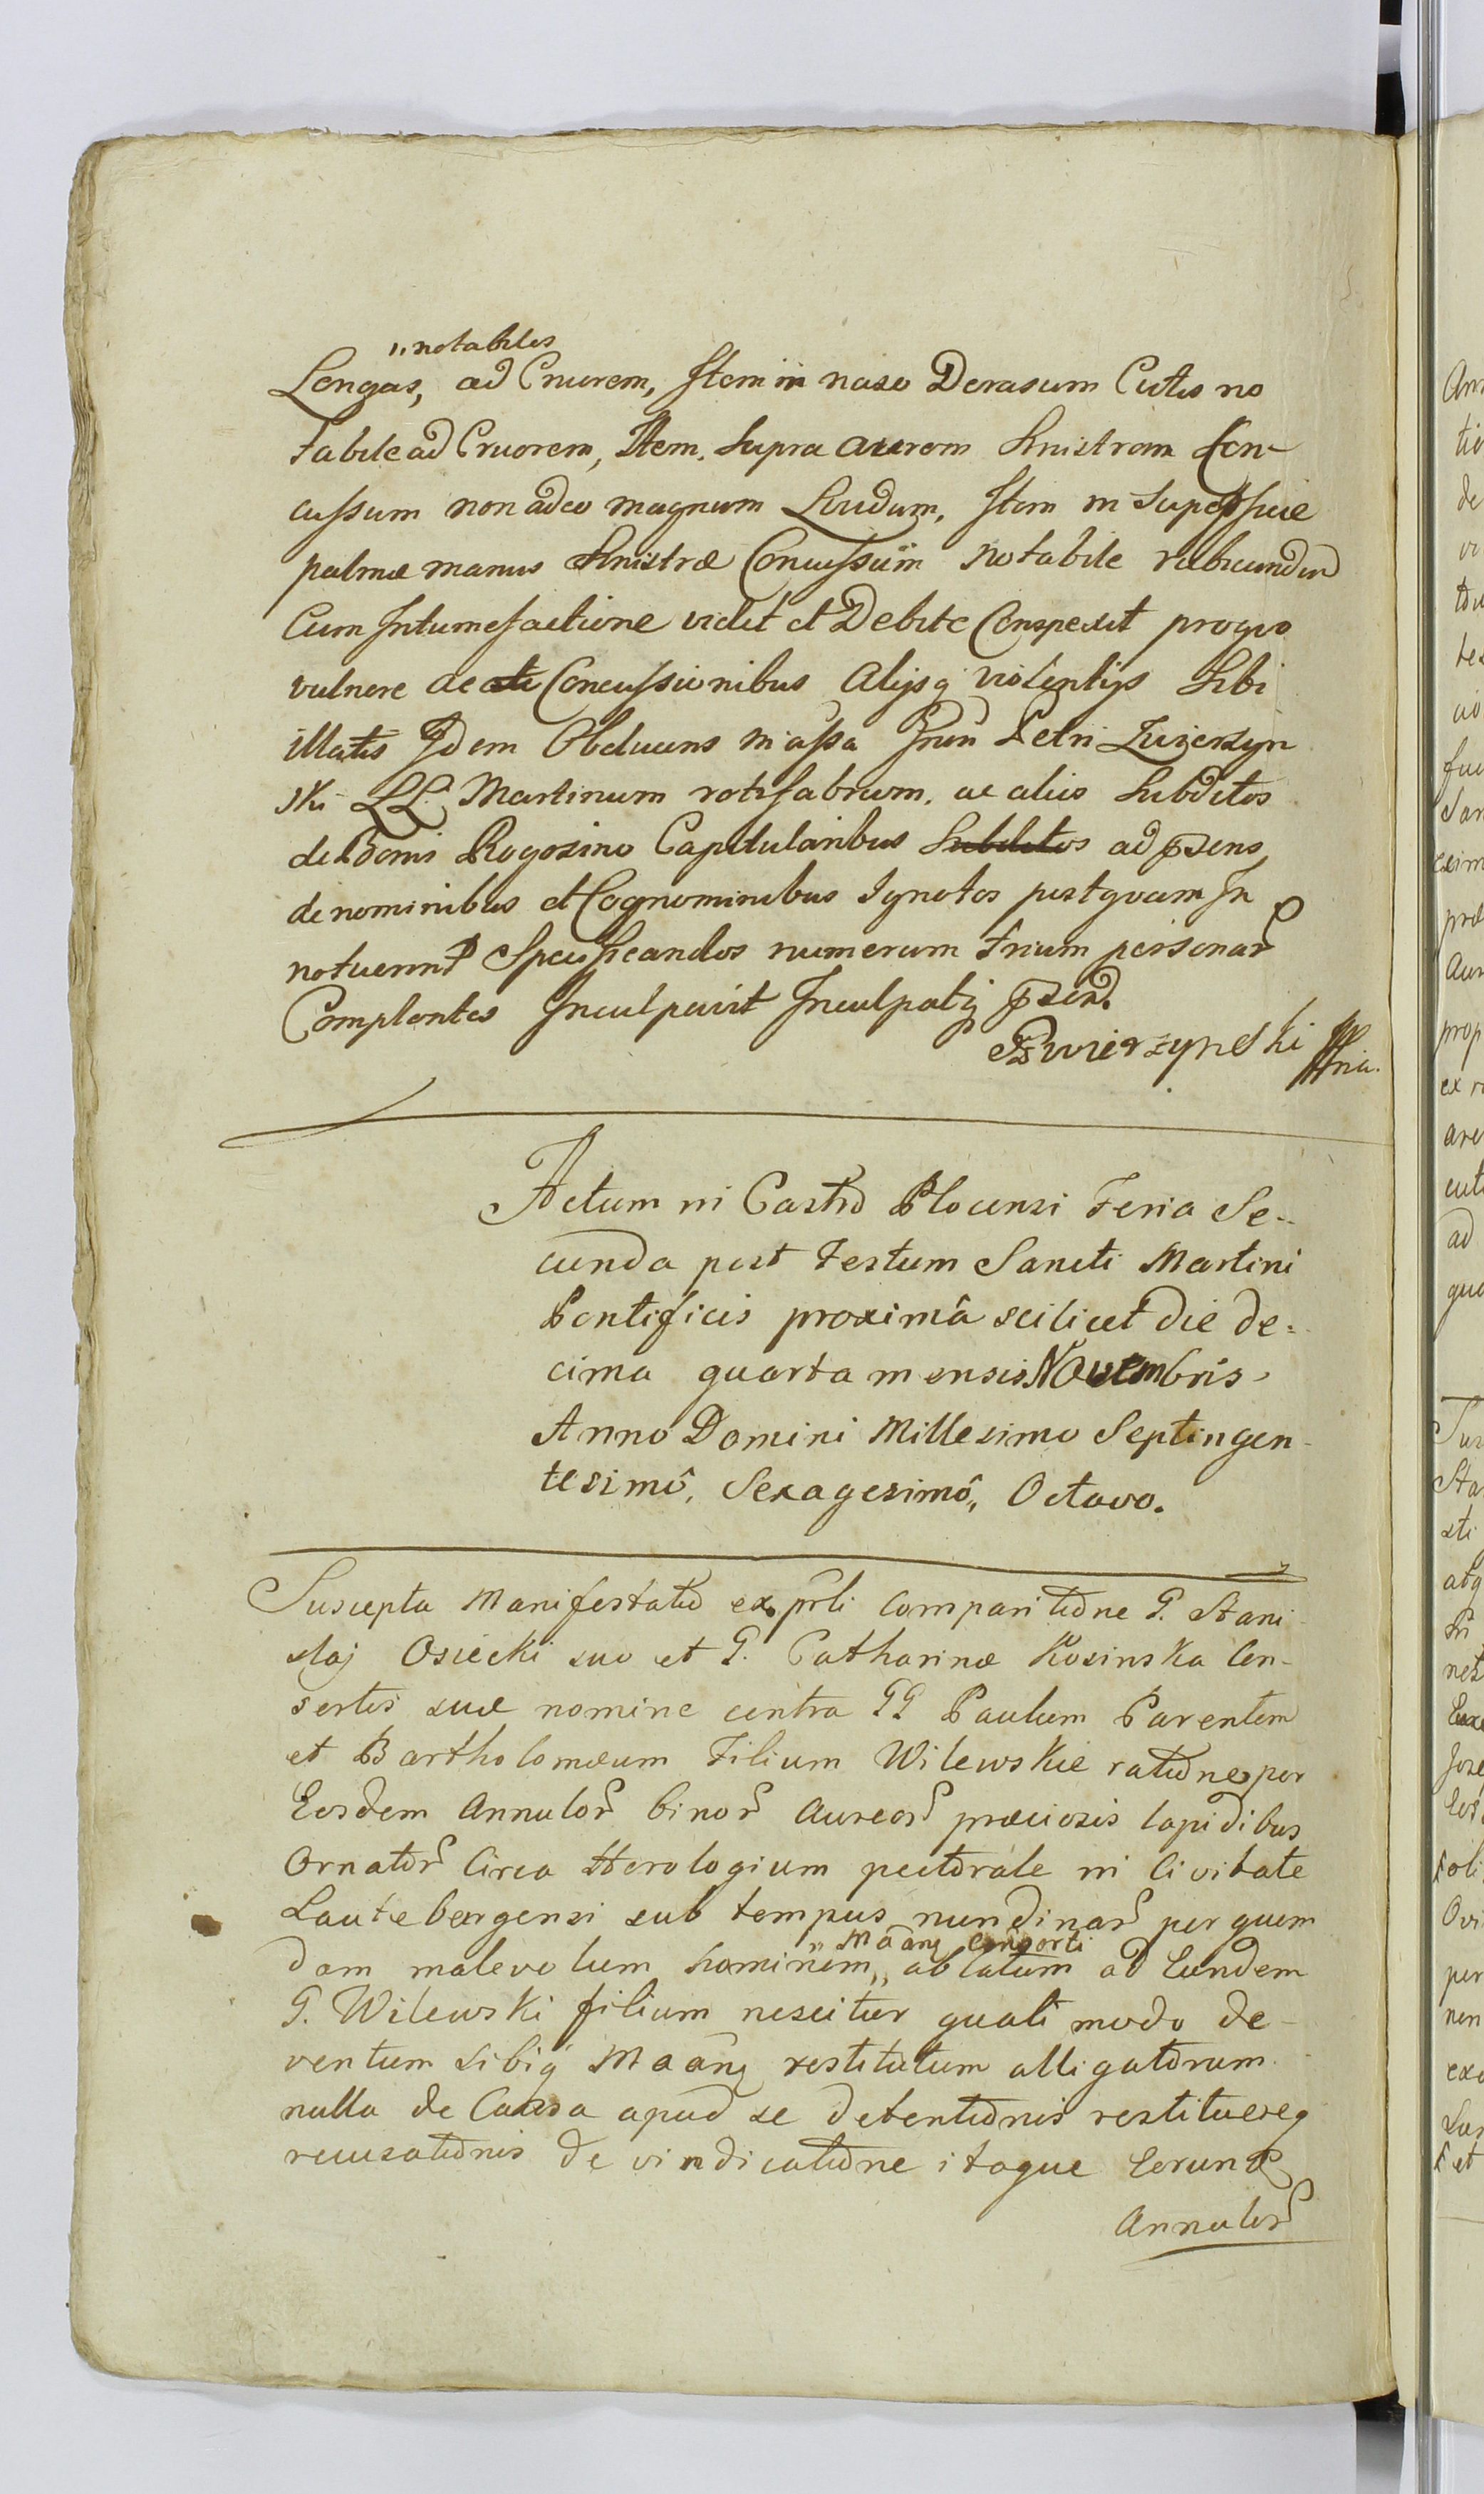 „notabiles
Longas, ad Cruorem, Item in naso Derasum Cutis no
tabile ad Cruorem, Item, supra aurem Sinistram Con-
cussum non adeo magnum Lividum, Item in superficie
palmæ manus Sinistræ Concussum notabile rubicundum
Cum Intumefactione vidit et Debite Conspexit pro quo
vulnere ac Concussionibus Alijsq violentijs Sibi
illatis Idem Obducens Petri Zwierzyn
ski LL. Martinum rotifabrum, ac alios Subditos
de Bonis Rogozino Capitularibus Subditos ad psens
de nominibus et Cognominibus Ignotos postquam In
notuerint Specificandos numerum trium personar
Complentes Inculpavit Inculpatq psen.
PZwierzynski
Actum in Castro Plocensi Feria Se-
cunda post Festum Sancti Martini
Pontificis proximâ scilicet die de=
cima quarta mensis Novembris
Anno Domini Millesimo Septingen-
tesimô, Sexagesimô, Octavo.
Suscepta Manifestatio ex prli Comparitione G. Stani
slaj Osiecki suo et G. Catharinæ Kosinska Con-
sortis suæ nomine contra GG Paulum Parentem
et Bartholomæum Filium Wilewskie ratione per
Eosdem Annulor binor Aureor præciosis lapidibus
Ornator Circa Horologium pectorale in Civitate
Lautebergensi sub tempus nundinar per quem
„ Maang Consorti
dam malevolum hominem„ ablatum ad Eundem
G. Wilewski filium nescitur quali modo de-
ventum sibiq Maang restitutum alligatorum
nulla de Causa apud se detentionis restituereq
recusationis de vindicatione itaque Eorund
Annulor